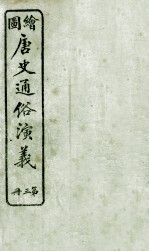 繪圖
唐史通俗演義
第三冊